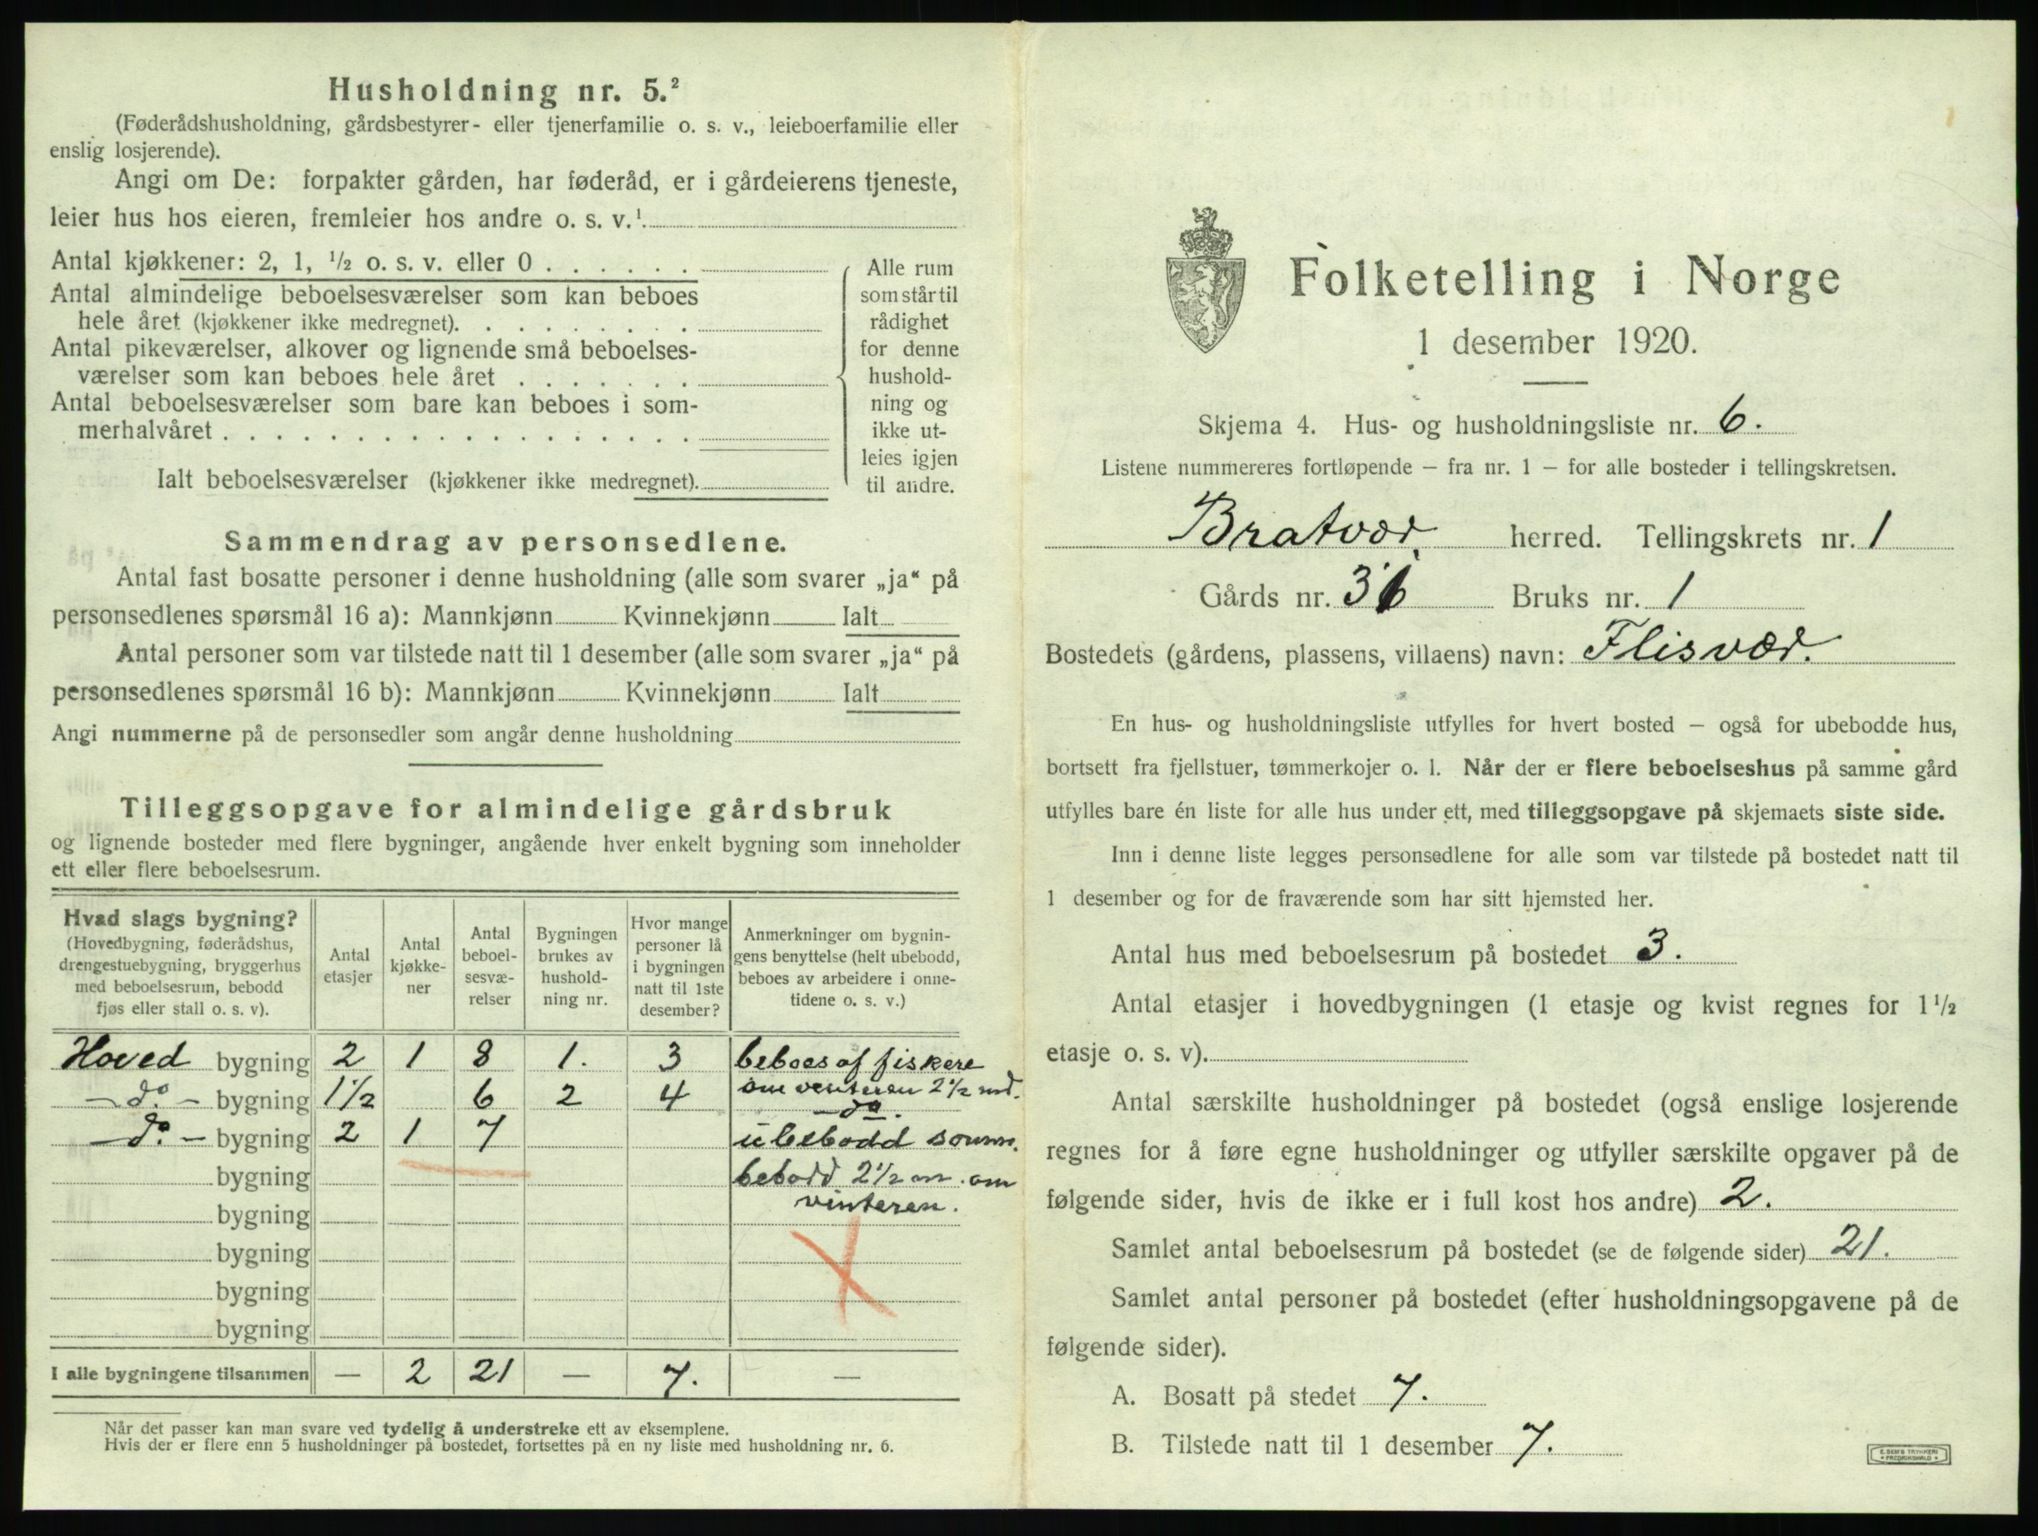 Husholdning nr. 5.²
(Føderådshusholdning, gårdsbestyrer- eller tjenerfamilie o. s. v., leieboerfamilie eller
enslig losjerende).
Angi om De: forpakter gården, har føderåd, er i gårdeierens tjeneste,
leier hus hos eieren, fremleier hos andre o. s. v.¹
Antal kjøkkener: 2, 1, ½ o. s. v. eller 0 . . . . . .
Antal almindelige beboelsesværelser som kan beboes
hele året (kjøkkener ikke medregnet). . . . . . . . .
Antal pikeværelser, alkover og lignende små beboelses-
værelser som kan beboes hele året . . . . . . .
Antal beboelsesværelser som bare kan beboes i som-
merhalvåret . . . . . . . . . . . . . . . . . .
Ialt beboelsesværelser (kjøkkener ikke medregnet).
Alle rum
som står til
rådighet
for denne
hushold-
ning og
ikke ut-
leies igjen
til andre.
Sammendrag av personsedlene.
Antal fast bosatte personer i denne husholdning (alle som svarer „ja“ på
personsedlenes spørsmål 16 a): Mannkjønn Kvinnekjønn Ialt
Antal personer som var tilstede natt til 1 desember (alle som svarer „ja“ på
personsedlenes spørsmål 16 b): Mannkjønn Kvinnekjønn Ialt
Angi nummerne på de personsedler som angår denne husholdning
Tilleggsopgave for almindelige gårdsbruk
og lignende bosteder med flere bygninger, angående hver enkelt bygning som inneholder
ett eller flere beboelsesrum.
Hvad slags bygning?
(Hovedbygning, føderådshus,
drengestuebygning, bryggerhus
med beboelsesrum, bebodd
fjøs eller stall o. s. v).
Antal
etasjer
Antal
kjøkke-
ner
Antal
beboel-
sesvæ-
relser
Bygningen
brukes av
hushold-
ning nr.
Hvor mange
personer lå
i bygningen
natt til 1ste
desember?
Anmerkninger om bygnin-
gens benyttelse (helt ubebodd,
beboes av arbeidere i onne-
tidene o. s. v.)
Hoved bygning 2 1 8 1. 3 beboes af fiskere
— do. — bygning 1½ 6 2 4 om venteren 2½ md.
— do.
— do. — bygning 2 1 7 ubebodd somm.
bygning bebodd 2½ m. om
bygning vinteren.
bygning
bygning
bygning
I alle bygningene tilsammen — 2 21 — 7. —
Når det passer kan man svare ved tydelig å understreke ett av eksemplene.
Hvis der er flere enn 5 husholdninger på bostedet, fortsettes på en ny liste med husholdning nr. 6.
Folketelling i Norge
1 desember 1920.
Skjema 4. Hus- og husholdningsliste nr. 6.
Listene nummereres fortløpende — fra nr. 1 — for alle bosteder i tellingskretsen.
Bratvær herred. Tellingskrets nr. 1
Gårds nr. 36 Bruks nr. 1
Bostedets (gårdens, plassens, villaens) navn: Flisvær.
En hus- og husholdningsliste utfylles for hvert bosted — også for ubebodde hus,
bortsett fra fjellstuer, tømmerkojer o. l. Når der er flere beboelseshus på samme gård
utfylles bare én liste for alle hus under ett, med tilleggsopgave på skjemaets siste side.
Inn i denne liste legges personsedlene for alle som var tilstede på bostedet natt til
1 desember og for de fraværende som har sitt hjemsted her.
Antal hus med beboelsesrum på bostedet 3.
Antal etasjer i hovedbygningen (1 etasje og kvist regnes for 1½
etasje o. s. v).
Antal særskilte husholdninger på bostedet (også enslige losjerende
regnes for å føre egne husholdninger og utfyller særskilte opgaver på de
følgende sider, hvis de ikke er i full kost hos andre) 2.
Samlet antal beboelsesrum på bostedet (se de følgende sider) 21.
Samlet antal personer på bostedet (efter husholdningsopgavene på de
følgende sider).
A. Bosatt på stedet 7.
B. Tilstede natt til 1 desember 7.
E. SEM'S TRYKKERI
FREDRIKSHALD